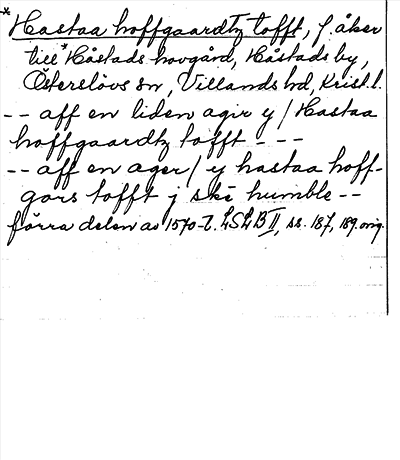 *Hastaa hoffgaardtz tofft, f. åker
till *Håstads hovgård, Håstads by,
Österslövs sn, Villands hd, Krist. l.
-- aff en liden agir y / Hastaa
hoffgaardtz tofft - - -
-- aff en ager / y hastaa hoff-
gors tofft j skè humble --
förra delen av 1570-t. LSLB II, ss. 187, 189. orig.